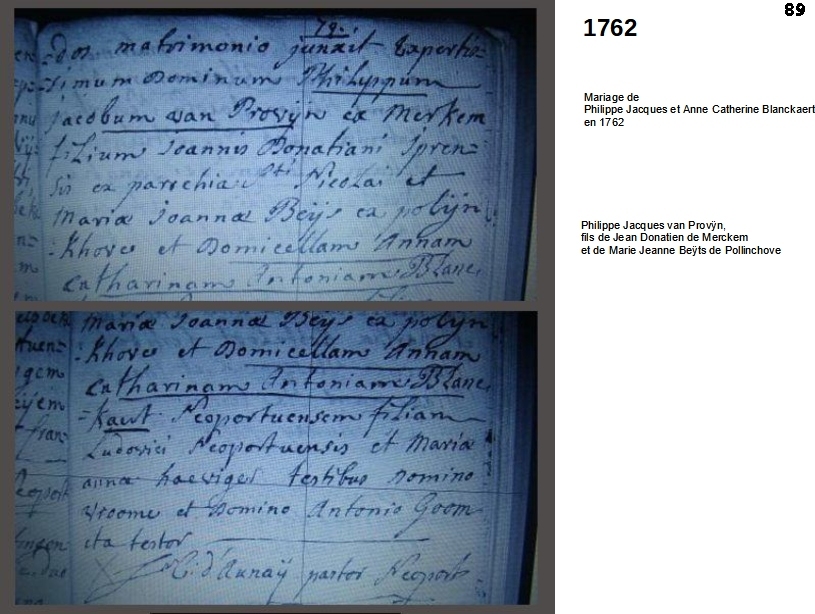 79.
dos matrimonio junxit Experti=
simum Dominum Philyppum
Jacobum van Provÿn ex Merkem
filium Joannis Donatiani Ipren=
sis ex parochia Sti Nicolai et
Mariæ Joannæ Beÿs ex polÿn
=khove et Domicellam Annam
Catharinam Antoniam Blanc,
Mariæ Joannæ Beÿs ex polÿn
=khove et Domicellam Annam
Catharinam Antoniam Blanc,
=kaut Neoportuensem filiam
Ludovici Neoportuensis et Maria
anna haeviger testibus Domino
vroome et Domino Antonio Goom
ita testor
d'Aunaÿ pastor Neoports
1762
89
Mariage de
Philippe Jacques et Anne Catherine Blanckaert
en 1762
Philippe Jacques van Provÿn,
fils de Jean Donatien de Merckem
et de Marie Jeanne Beÿts de Pollinchove